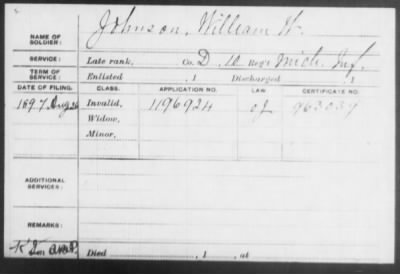 NAME OF SOLDIER: Johnson, William H.
SERVICE: Late rank, Co. D, 10 Reg't Mich. Inf.
TERM OF SERVICE: Enlisted , 1 Discharged , 1
DATE OF FILING. CLASS. APPLICATION NO. LAW CERTIFICATE NO.
1897 Aug 26 Invalid, 1196924 963039
Widow,
Minor,
ADDITIONAL SERVICES:
REMARKS:
Died , 1 , at